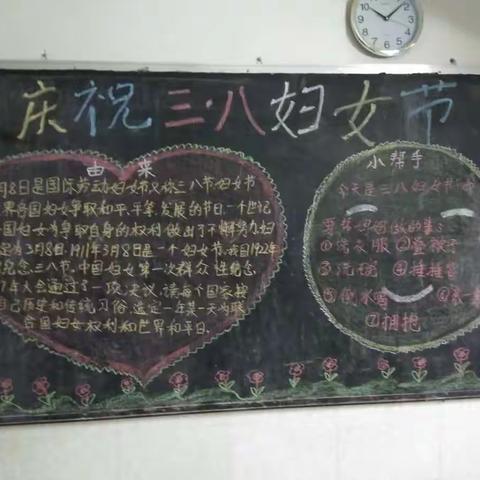 庆祝三·八妇女节
由来
月8日是国际劳动妇女节又称三八节妇女节
界各国妇女争取和平、平等、发展的节日.一个世纪
国妇女为争取自身的权利做出了不懈努力.妇
定为3月8日.1911年3月8日是一个妇女节.我国1922年
纪念三八节.中国妇女第一次群众性纪念
年人会通过 一项决议,请每个国家按
自己历史和传统习俗,选定一年某一天为联
合国妇女权利和世界和平日.
小帮手
今天是三八妇女节
要帮妈妈做的事:
①洗衣服②叠被子
③洗碗 ④捶捶背
⑤倒水喝 ⑥
⑦拥抱